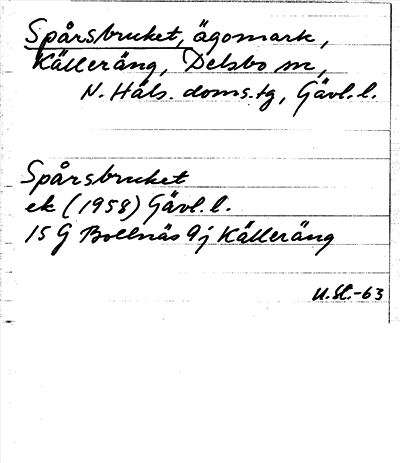 Spårsbruket, ägomark,
Källeräng, Delsbo sn,
N. Häls. doms.tg, Gävl.l.
Spårsbruket
ek (1958) Gävl.l.
15 G Bollnäs 9j Källeräng
U.Sl.-63